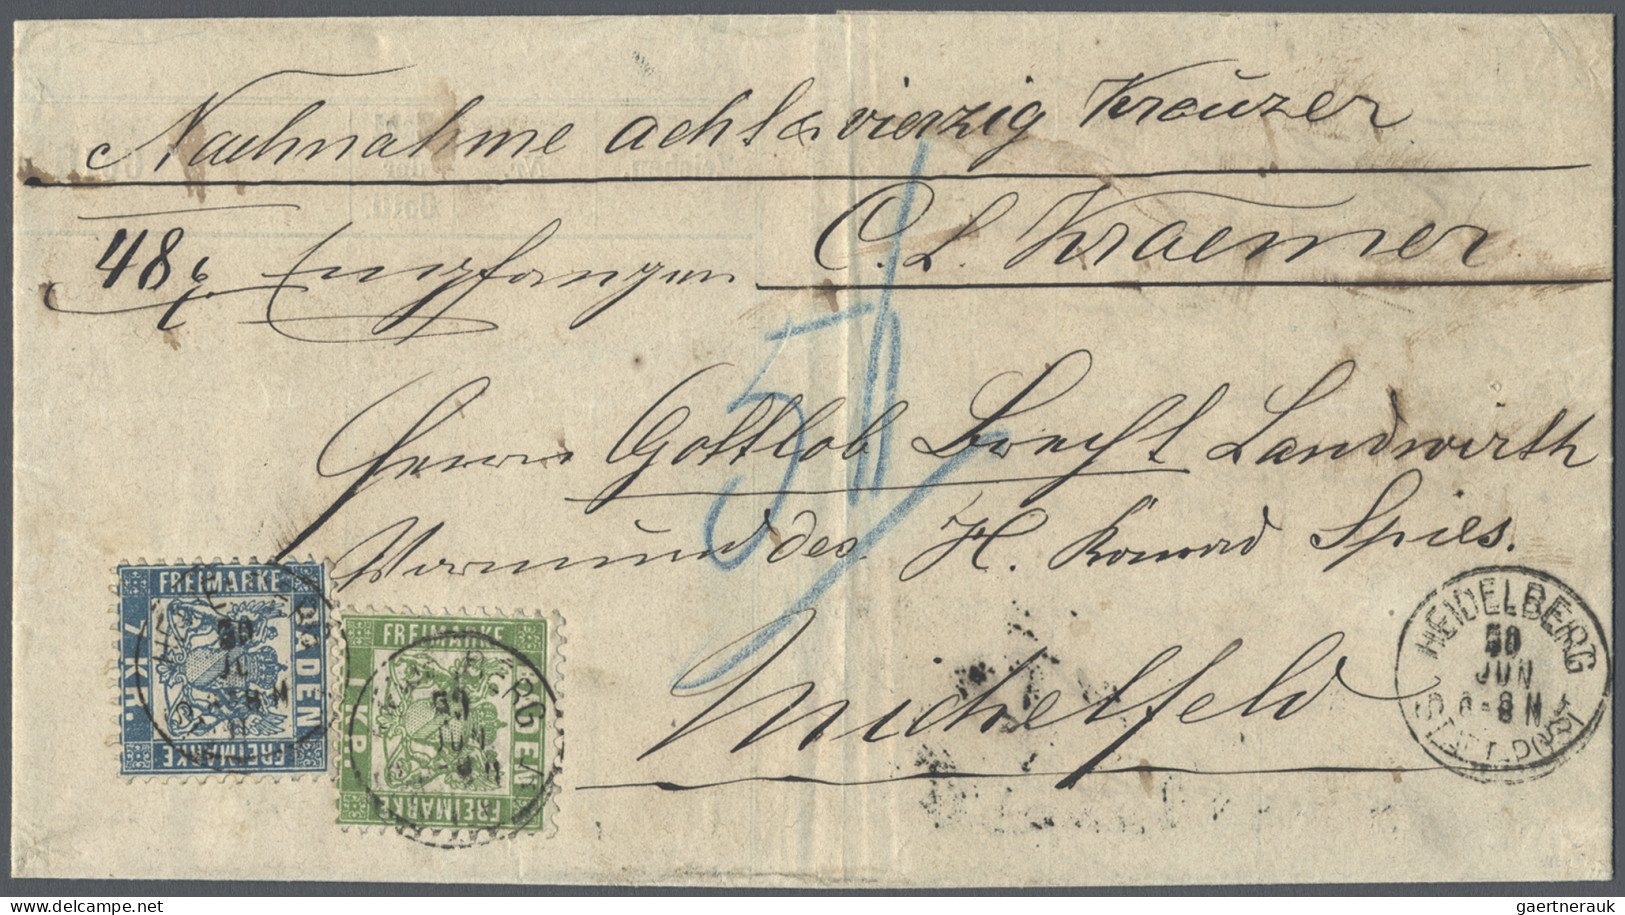 Nachnahme acht & vierzig Kreuzer
48 Empfangen C. L. Kraemer
Herrn Gottlob Brecht Landwirth
Vormund des H. Konrad Spies.
Michelfeld
FREIMARKE
BADEN
7 KR.
FREIMARKE
FREIMARKE
BADEN
1 KR.
FREIMARKE
HEIDELBERG
30
JUN
6-8 N
STADT-POST
delcampe.net
gaertnerauk